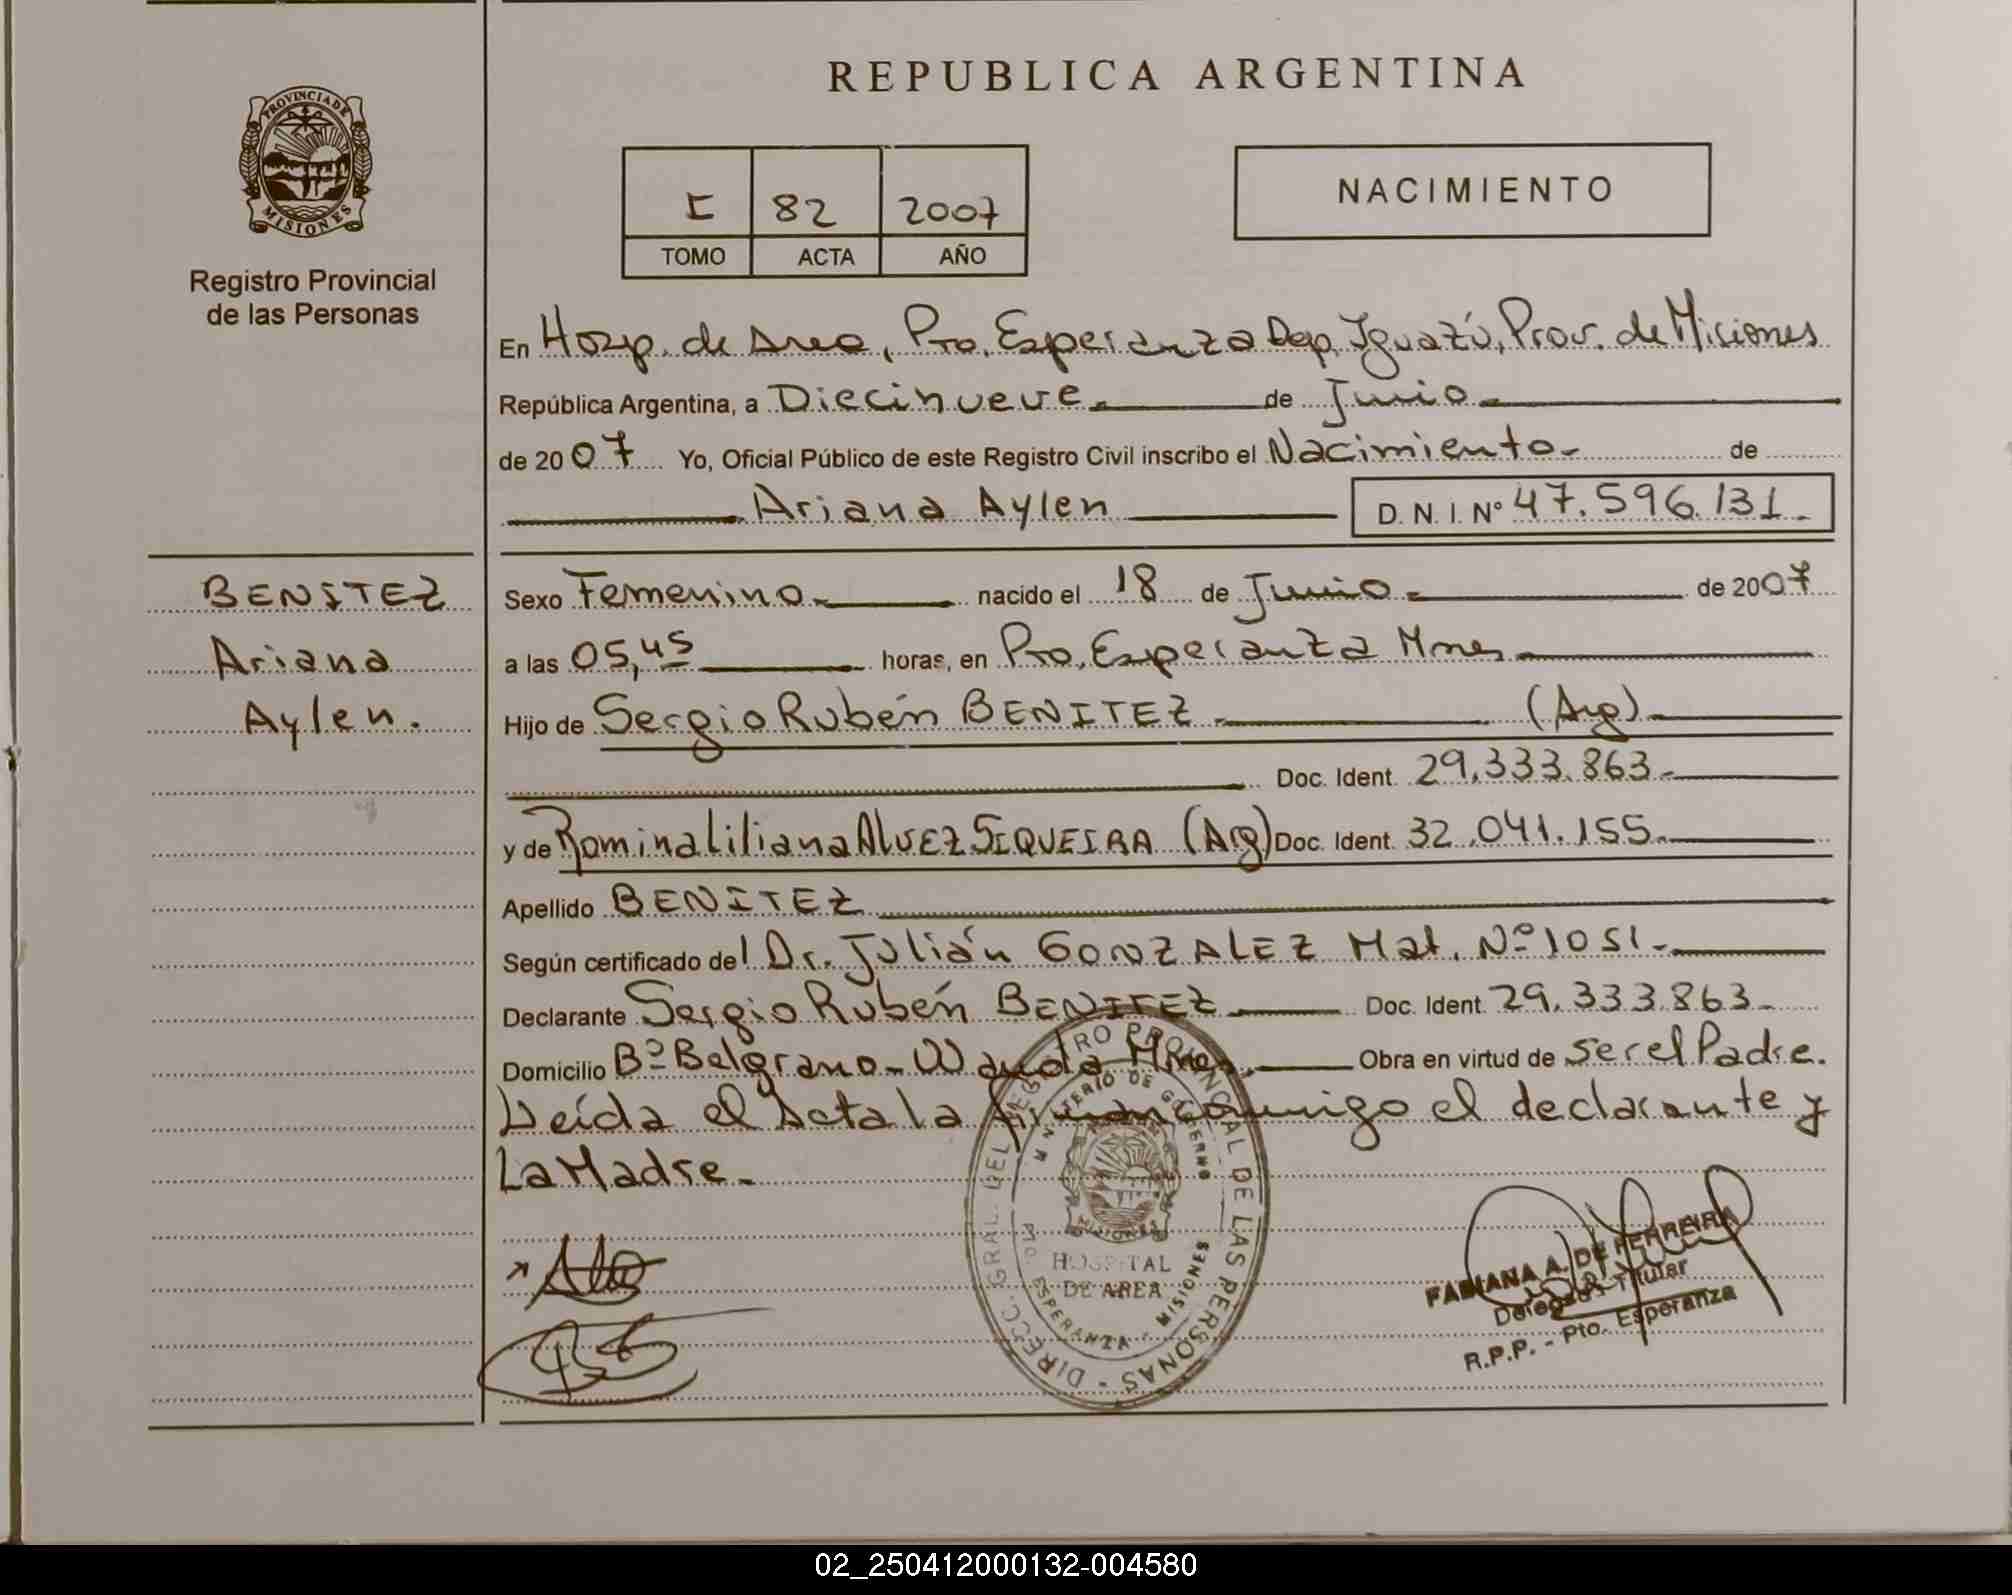 REPUBLICA ARGENTINA
PROVINCIA DE
MISIONES
Registro Provincial
de las Personas
I 82 2007
TOMO ACTA AÑO
NACIMIENTO
En Hosp. de Area, Pto. Esperanza Dep. Iguazú, Prov. de Misiones
República Argentina, a Diecinueve de Junio
de 2007 Yo, Oficial Público de este Registro Civil inscribo el Nacimiento de
Ariana Aylen D.N.I. Nº 47.596.131
BENITEZ
Ariana
Aylen.
Sexo Femenino nacido el 18 de Junio de 2007
a las 05,45 horas, en Pto. Esperanza Mnes
Hijo de Sergio Rubén BENITEZ (Arg)
Doc. Ident. 29.333.863
y de Romina Liliana ALVEZ SIQUEIRA (Arg) Doc. Ident. 32.041.155
Apellido BENITEZ
Según certificado del Dr. Julián GONZALEZ Mat. Nº 1051
Declarante Sergio Rubén BENITEZ Doc. Ident. 29.333.863
Domicilio Bº Belgrano - Wanda Mnes. Obra en virtud de ser el Padre.
Leída el Acta la firman conmigo el declarante y
La Madre.
DIRECC. GRAL. DEL REGISTRO PROVINCIAL DE LAS PERSONAS
MINISTERIO DE GOBIERNO
MISIONES
HOSPITAL
DE AREA
PTO. ESPERANZA - MISIONES
FABIANA A. DE FERREIRA
Delegada Titular
R.P.P. - Pto. Esperanza
02_250412000132-004580